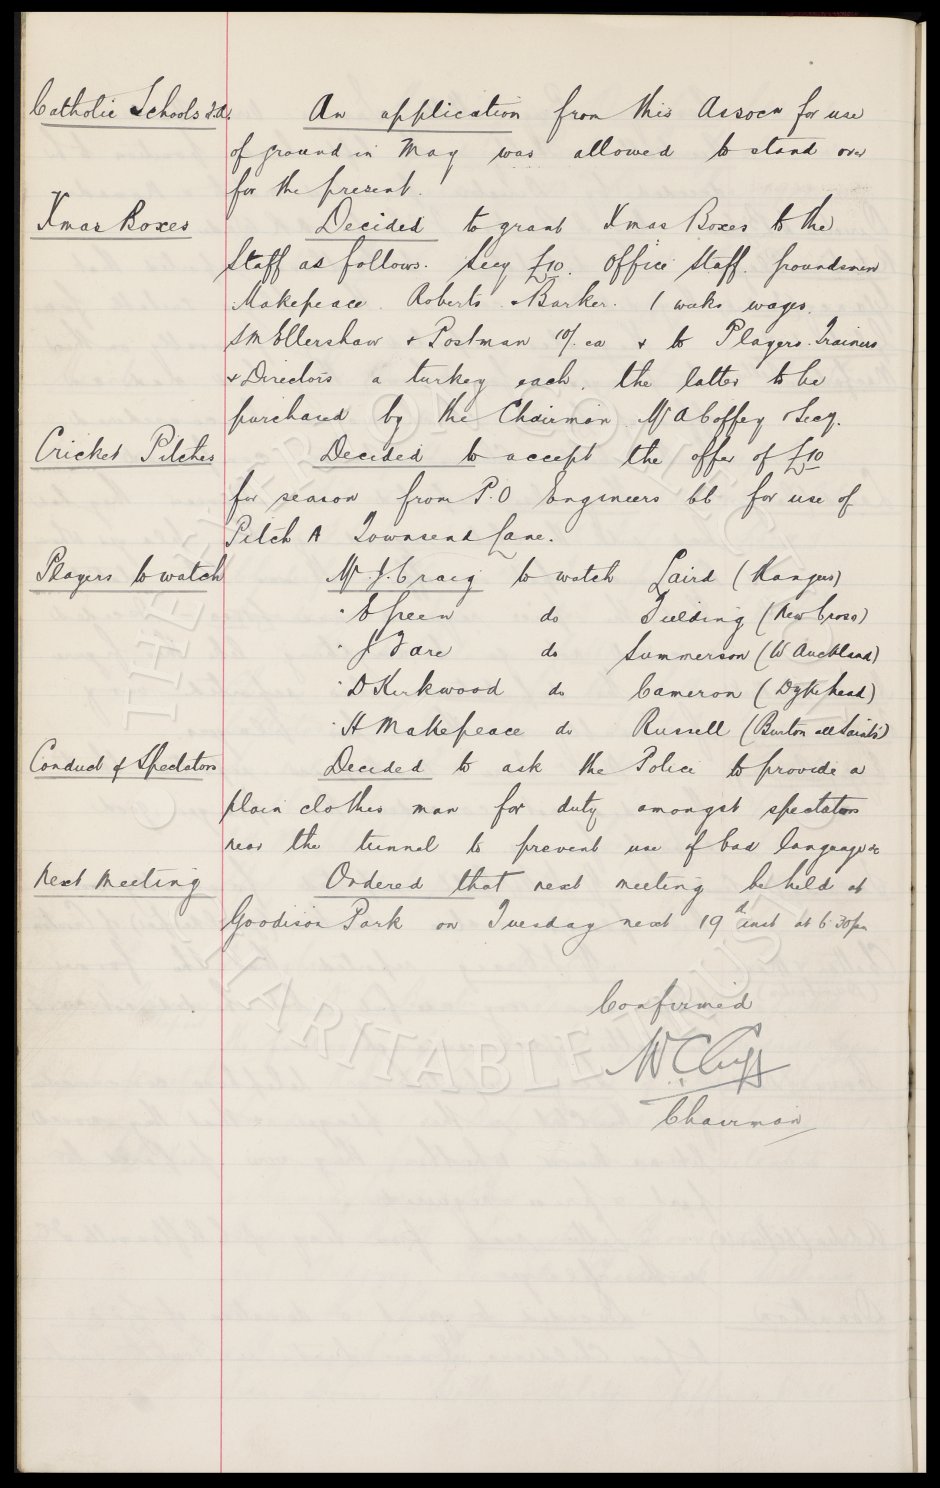 Catholic Schools F.A. An application from this Assocn for use
of ground in May was allowed to stand over
for the present.
Xmas Boxes Decided to grant Xmas Boxes to the
Staff as follows. Secy £10. Office Staff. Groundsmen
Makepeace. Roberts. & Barker. 1 weeks wages.
Ellershaw & Postman 10/- ea & to Players. Trainers
& Directors a turkey each, the latter to be
purchased by the Chairman. Mr A Coffey & Secy.
Cricket Pitches Decided to accept the offer of £10
for season from P.O Engineers CC for use of
Pitch A Townsend Lane.
Players to watch Mr J. Craig to watch Laird (Rangers)
" C Green do Fielding (New Cross)
" J Fare do Summerson (W Auckland)
" D Kirkwood do Cameron (Dykehead)
" H Makepeace do Russell (Burton all Saints)
Conduct of Spectators Decided to ask the Police to provide a
plain clothes man for duty amongst spectators
near the tunnel to prevent use of bad language &c
Next Meeting Ordered that next meeting be held at
Goodison Park on Tuesday next 19th inst at 6.30pm
Confirmed
W C Cuff
Chairman
THE EVERTON COLLECTION CHARITABLE TRUST